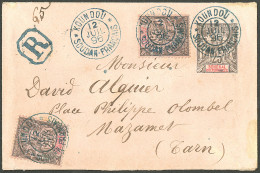 65
R
KOUNDOU
12
JUIL
96
SOUDAN-FRANÇAIS
KOUNDOU
12
JUIL
96
25
Monsieur
David Alquier
Place Philippe Olombel
Mazamet
(Tarn)